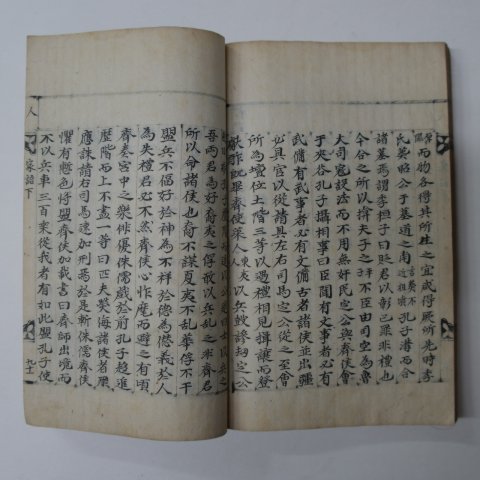 而物各得其所生之宜咸得厥所先時季
氏葬昭公于墓道之南言葬不近祖墳孔子溝而合
諸墓焉謂季桓子曰貶君以彰己罪非禮也
今合之所以揜夫子之不臣由司空為魯
大司寇設法而不用無奸民定公與齊侯會
于夾谷孔子攝相事曰臣聞有文事者必有
武備有武事者必有文備古者諸侯並出疆
必具官以從請具左右司馬定公從之至會
所為壇位土階三等以遇禮相見揖讓而登
獻酢既畢齊使萊人東夷以兵鼓譟劫定公
吾兩君為好裔夷之俘敢以兵亂之非齊君
所以命諸侯也裔不謀夏夷不亂華俘不干
盟兵不偪好於神為不祥於德為愆義於人
為失禮君必不然齊侯心怍麾而避之有頃
齊奏宮中之樂俳優侏儒戲於前孔子趨進
歷階而上不盡一等曰匹夫熒侮諸侯者罪
應誅請右司馬速加刑焉於是斬侏儒齊侯
懼有慙色將盟齊侯加載書曰齊師出境而
不以兵車三百乘從我者有如此盟孔子使
人
家語下